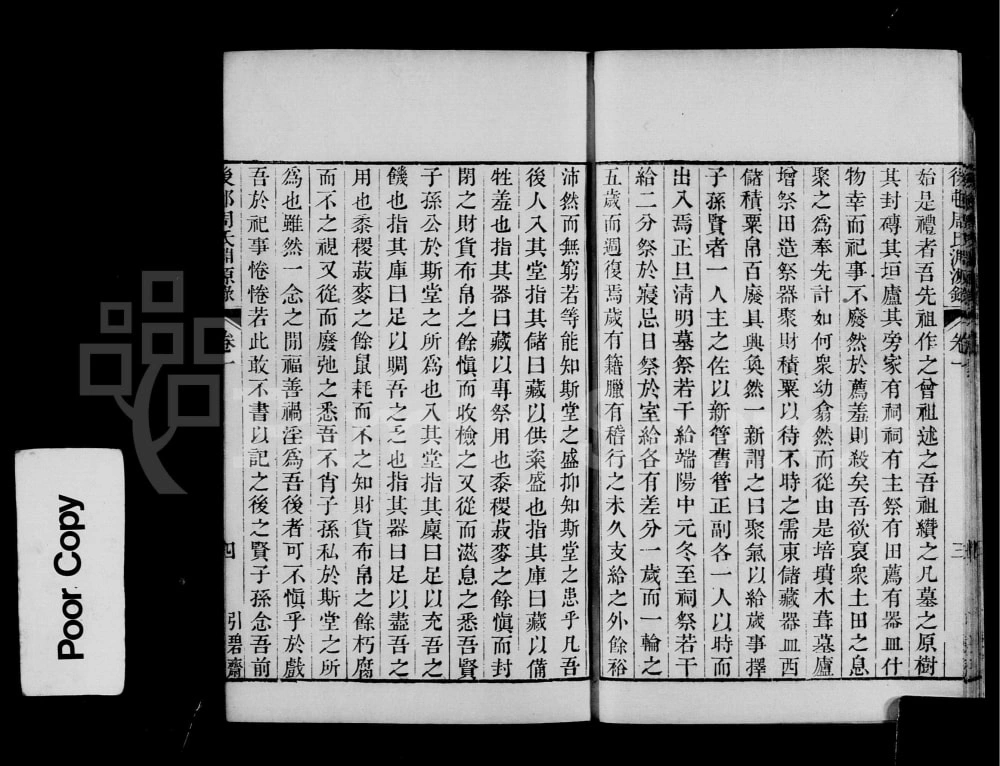 始是禮者吾先祖作之曾祖述之吾祖纘之凡墓之原樹
其封磚其垣廬其旁家有祠祠有主祭有田薦有器皿什
物幸而祀事不廢然於薦羞則殺矣吾欲裒衆土田之息
聚之爲奉先計如何衆幼翕然而從由是培墳木葺墓廬
增祭田造祭器聚財積粟以待不時之需東儲藏器皿西
儲積粟帛百廢具興奐然一新謂之曰聚氣以給歲事擇
子孫賢者一人主之佐以新管舊管正副各一人以時而
出入焉正旦淸明墓祭若干給端陽中元冬至祠祭若干
給二分祭於寢忌日祭於室給各有差分一歲而一輪之
五歲而週復焉歲有籍臘有稽行之未久支給之外餘裕
沛然而無窮若等能知斯堂之盛抑知斯堂之患乎凡吾
後人入其堂指其儲曰藏以供粢盛也指其庫曰藏以備
牲羞也指其器曰藏以專祭用也黍稷菽麥之餘愼而封
閉之財貨布帛之餘愼而收檢之又從而滋息之悉吾賢
子孫公於斯堂之所爲也入其堂指其廩曰足以充吾之
饑也指其庫曰足以賙吾之乏也指其器曰足以盡吾之
用也黍稷菽麥之餘鼠耗而不之知財貨布帛之餘朽腐
而不之視又從而廢弛之悉吾不肖子孫私於斯堂之所
爲也雖然一念之間福善禍淫爲吾後者可不愼乎於戲
吾於祀事惓惓若此敢不書以記之後之賢子孫念吾前
後邨周氏淵源錄 卷一 三
後邨周氏淵源錄 卷一 四 引碧齋
Poor Copy